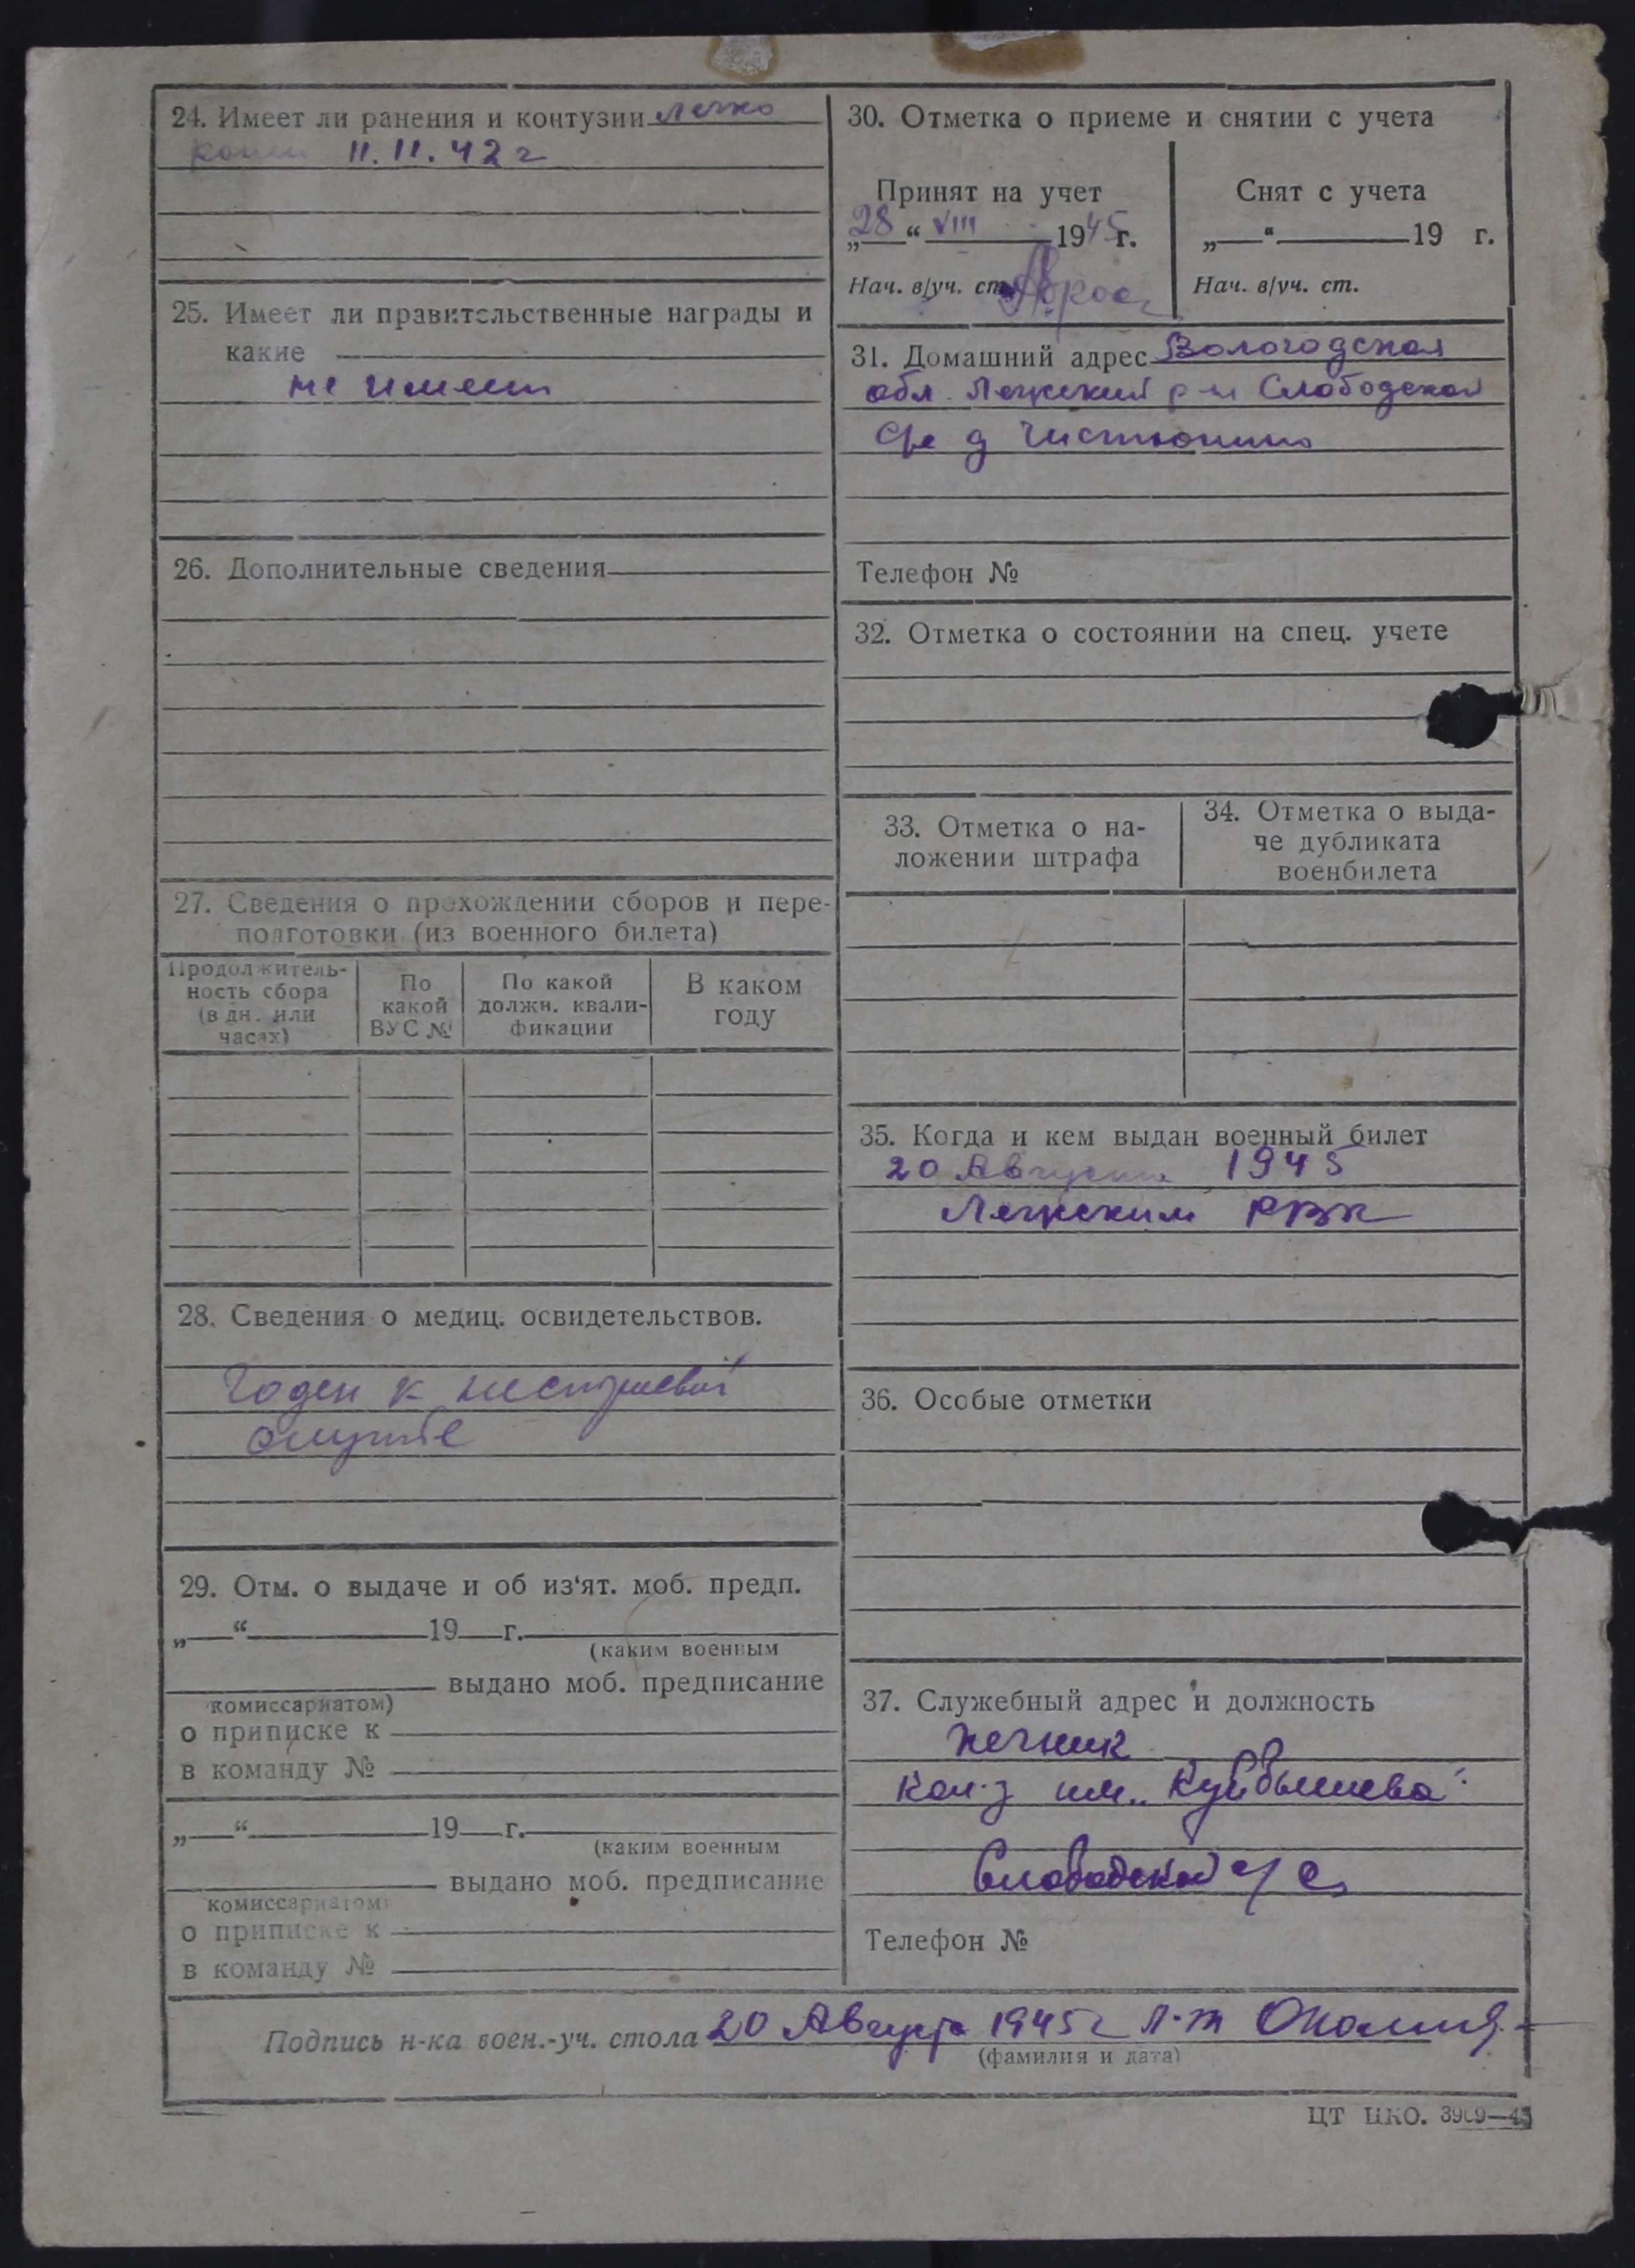 24. Имеет ли ранения и контузии легко
11.11.42 г
25. Имеет ли правительственные награды и
какие
не имеет
26. Дополнительные сведения
27. Сведения о прохождении сборов и пере-
подготовки (из военного билета)
Продолжитель-
ность сбора
(в дн. или
часах)
По
какой
ВУС №
По какой
должн. квали-
фикации
В каком
году
28. Сведения о медиц. освидетельствов.
Годен к нестроевой
службе
29. Отм. о выдаче и об из‘ят. моб. предп.
„ “ 19 г.
(каким военным
выдано моб. предписание
комиссариатом)
о приписке к
в команду №
„ “ 19 г.
(каким военным
выдано моб. предписание
комиссариатом)
о приписке к
в команду №
30. Отметка о приеме и снятии с учета
Принят на учет
„28“ VIII 1945 г.
Нач. в/уч. ст.
Снят с учета
„ “ 19 г.
Нач. в/уч. ст.
31. Домашний адрес Вологодская
обл. Лежский р-н Слободской
с/с д Чистюнино
Телефон №
32. Отметка о состоянии на спец. учете
33. Отметка о на-
ложении штрафа
34. Отметка о выда-
че дубликата
военбилета
35. Когда и кем выдан военный билет
20 Августа 1945
Лежским РВК
36. Особые отметки
37. Служебный адрес и должность
печник
кол-з им. „Куйбышева“
Слободской с/с
Телефон №
Подпись н-ка воен.-уч. стола 20 Августа 1945 г Л-т
(фамилия и дата)
ЦТ НКО. 3969—45